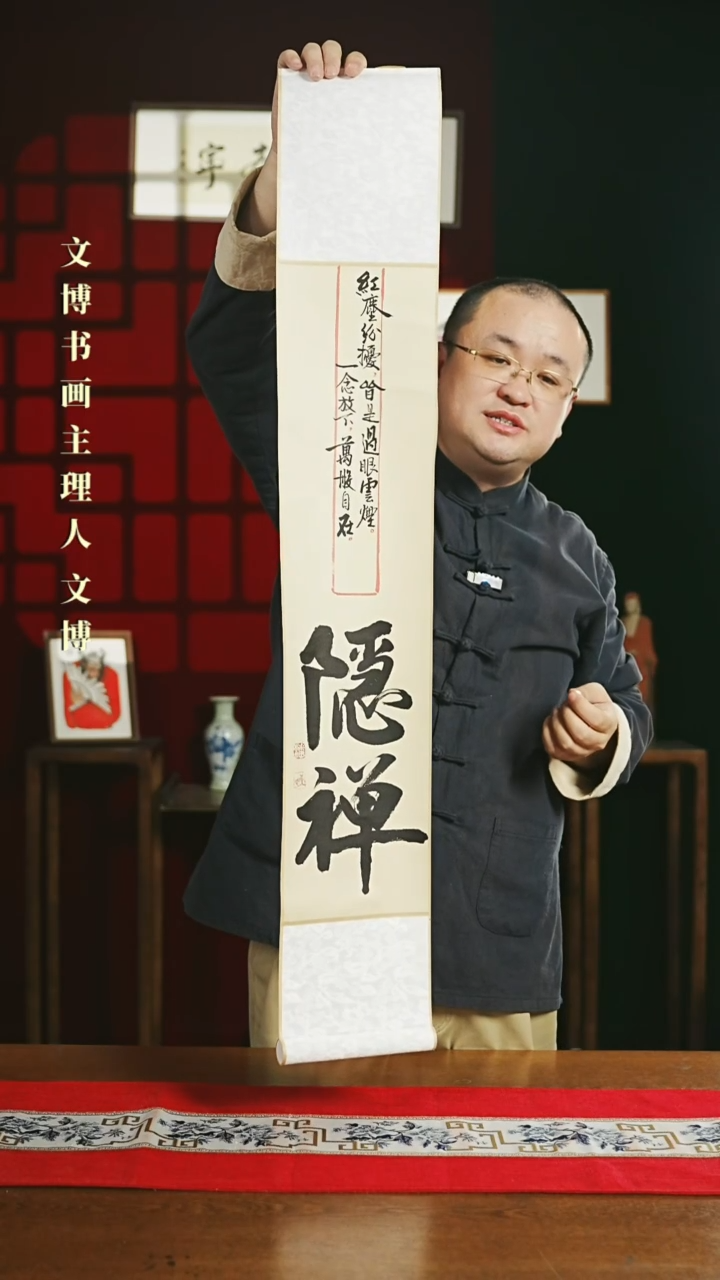 文博书画主理人文博
紅塵纷擾，皆是過眼雲煙。
一念放下，萬般自在。
隱禅